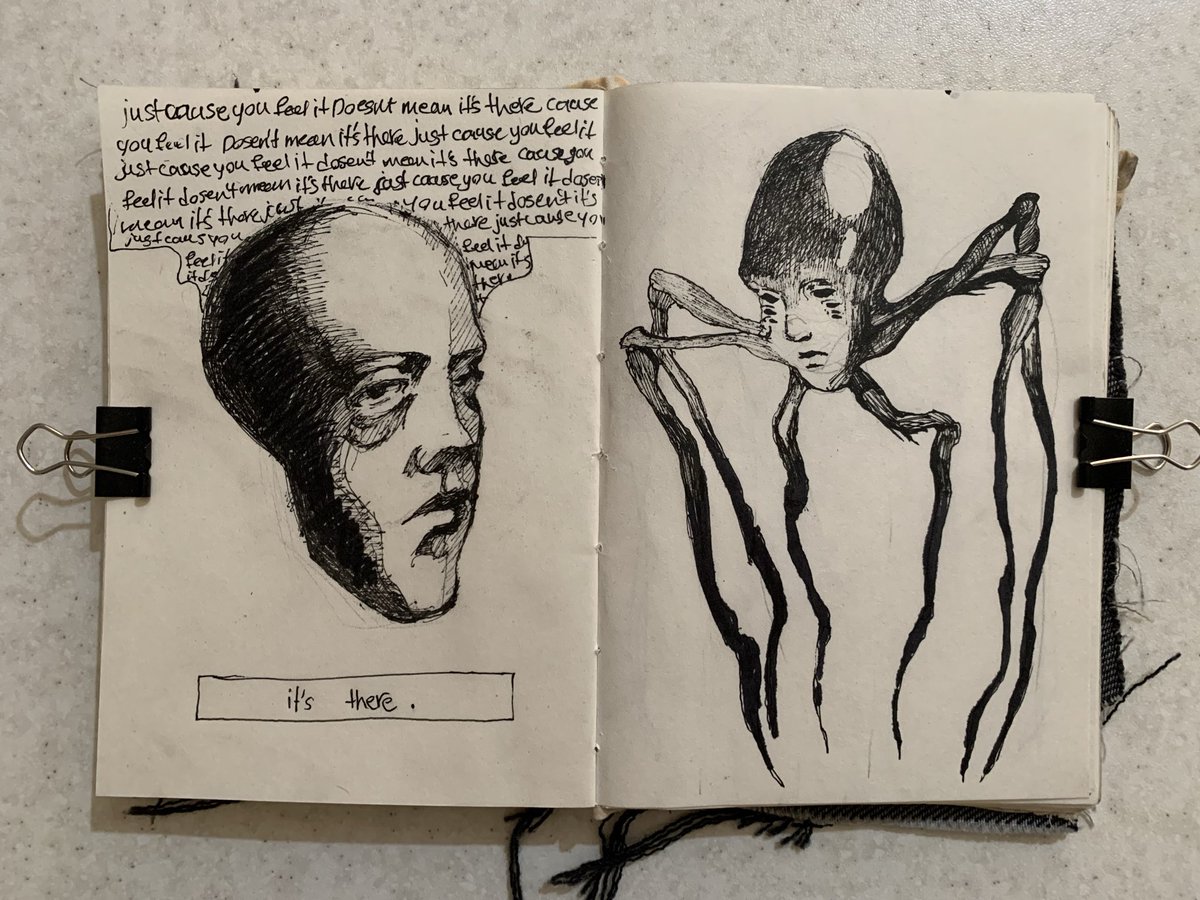 just cause you feel it Doesnt mean it's there cause
you feel it Dosen't mean it's there just cause you feel it
just cause you feel it dosen't mean it's there cause you
feel it dosen't mean it's there just cause you feel it dosen
mean it's there just you feel it dosen't it's
just caus you there just cause you
feel it feel it d
mean it's
there
it's there.